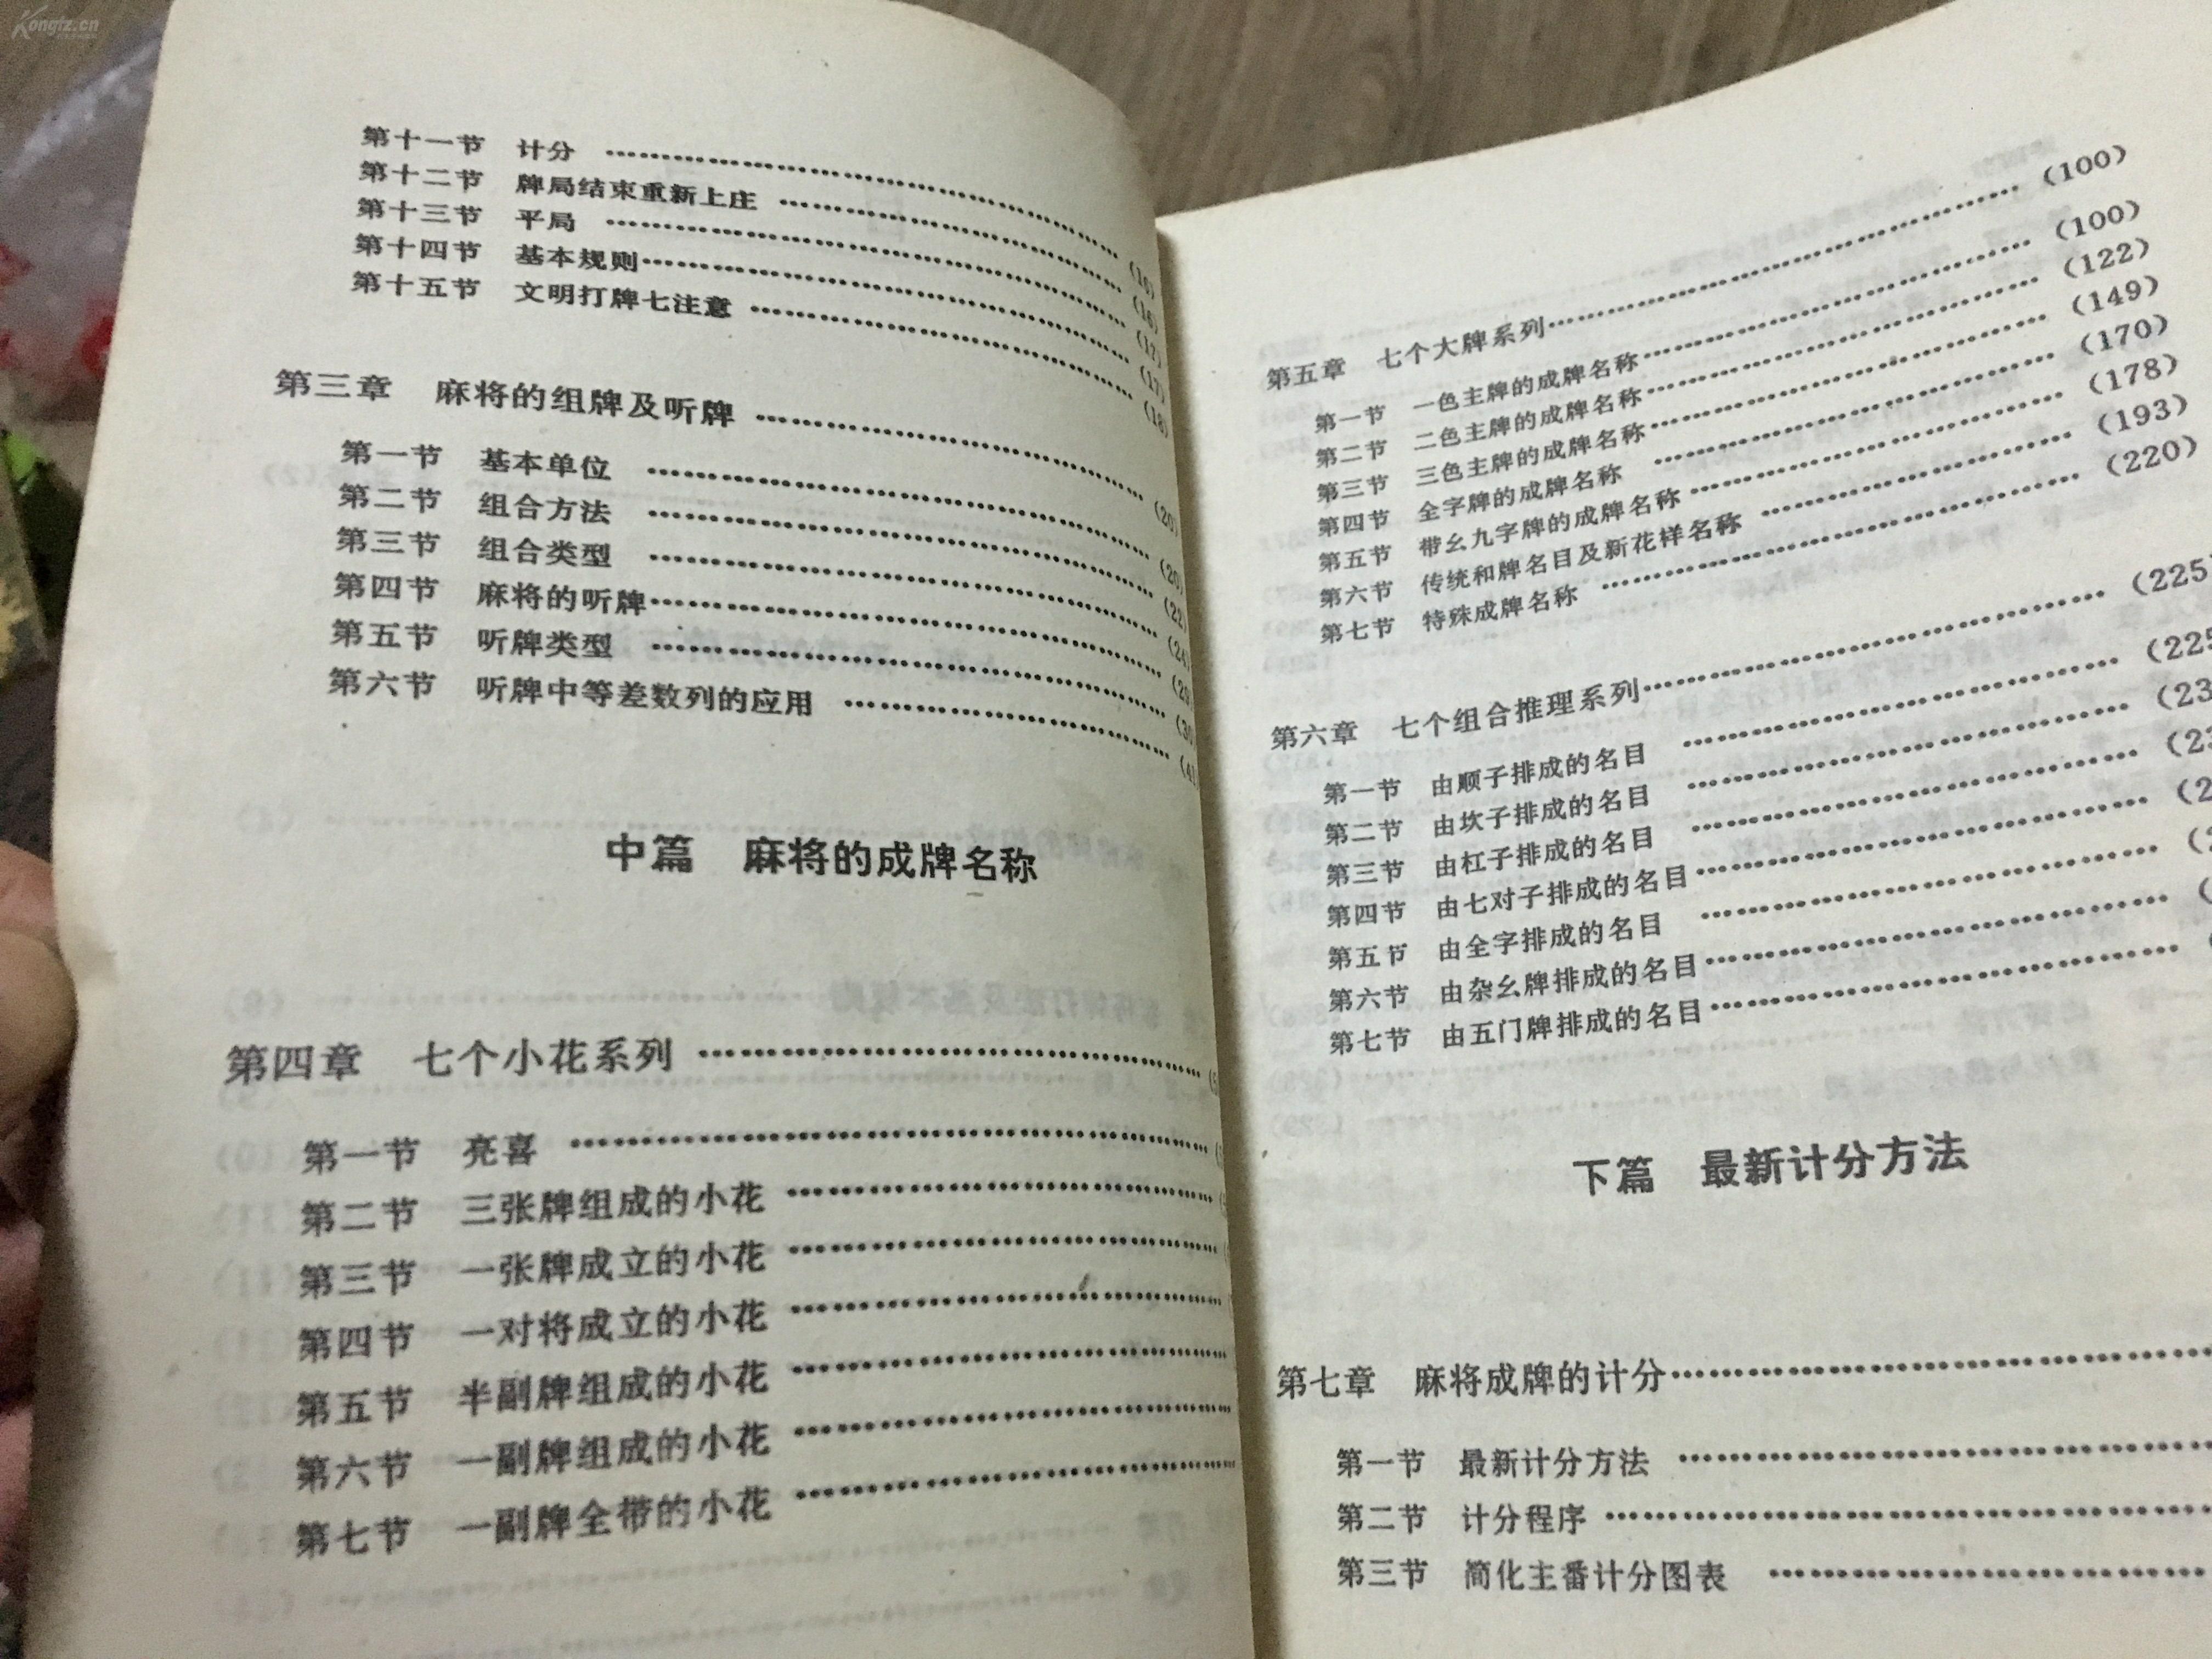 Kongfz.cn
第十一节 计分 ………………………… (16)
第十二节 牌局结束重新上庄 ………………………… (16)
第十三节 平局 ………………………… (17)
第十四节 基本规则………………………… (17)
第十五节 文明打牌七注意 ………………………… (18)
第三章 麻将的组牌及听牌 ………………………… (20)
第一节 基本单位 ………………………… (20)
第二节 组合方法 ………………………… (22)
第三节 组合类型 ………………………… (24)
第四节 麻将的听牌………………………… (29)
第五节 听牌类型 ………………………… (30
第六节 听牌中等差数列的应用 ………………………… (41
中篇 麻将的成牌名称
第四章 七个小花系列 …………………………
第一节 亮喜 …………………………
第二节 三张牌组成的小花 …………………………
第三节 一张牌成立的小花 …………………………
第四节 一对将成立的小花 …………………………
第五节 半副牌组成的小花 …………………………
第六节 一副牌组成的小花 …………………………
第七节 一副牌全带的小花 …………………………
第五章 七个大牌系列………………………… (100)
第一节 一色主牌的成牌名称………………………… (100)
第二节 二色主牌的成牌名称………………………… (122)
第三节 三色主牌的成牌名称………………………… (149)
第四节 全字牌的成牌名称 ………………………… (170)
第五节 带幺九字牌的成牌名称………………………… (178)
第六节 传统和牌名目及新花样名称 ………………………… (193)
第七节 特殊成牌名称 ………………………… (220)
第六章 七个组合推理系列………………………… (225)
第一节 由顺子排成的名目 ………………………… (225
第二节 由坎子排成的名目 ………………………… (23
第三节 由杠子排成的名目 ………………………… (23
第四节 由七对子排成的名目………………………… (2
第五节 由全字排成的名目 ………………………… (2
第六节 由杂幺牌排成的名目………………………… (
第七节 由五门牌排成的名目………………………… (
下篇 最新计分方法
第七章 麻将成牌的计分…………………………
第一节 最新计分方法 …………………………
第二节 计分程序 …………………………
第三节 简化主番计分图表 …………………………